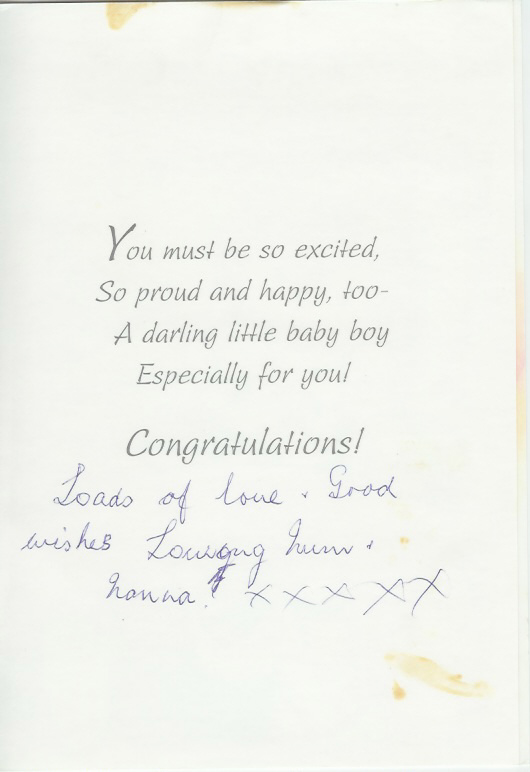 You must be so excited,
So proud and happy, too-
A darling little baby boy
Especially for you!
Congratulations!
Loads of love & Good
wishes mum &
nanna. x x x x x